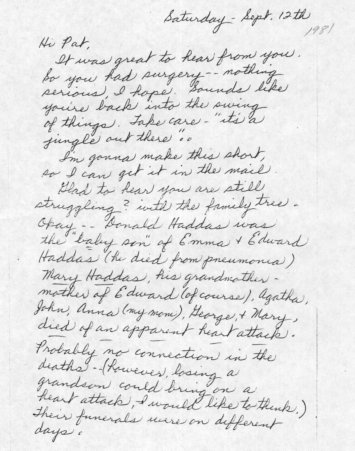 Saturday - Sept. 12th
1981
Hi Pat,
It was great to hear from you.
So you had surgery -- nothing
serious, I hope. Sounds like
you're back into the swing
of things. Take care - "it's a
jungle out there"..
I'm gonna make this short,
so I can get it in the mail.
Glad to hear you are still
struggling? with the family tree.
Okay -- Donald Haddas was
the "baby son" of Emma & Edward
Haddas (he died from pneumonia)
Mary Haddas, his grandmother -
mother of Edward (of course), Agatha,
John, Anna (my mom), George, & Mary,
died of an apparent heart attack.
Probably no connection in the
deaths - (however, losing a
grandson could bring on a
heart attack, I would like to think.)
Their funerals were on different
days.